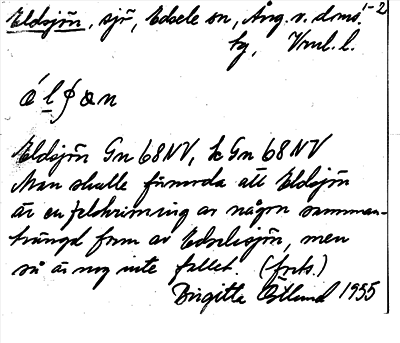 Eldsjön, sjö, Edsele sn, Ång. v. doms. 1-2
by, Vml. l.
Eldsjön Gn 68 NV, k Gn 68 NV
Man skulle förmoda att Eldsjön
är en felskrivning av någon samman-
trängd form av Edselesjön, men
så är nog inte fallet. (forts.)
Birgitta Östlund 1955